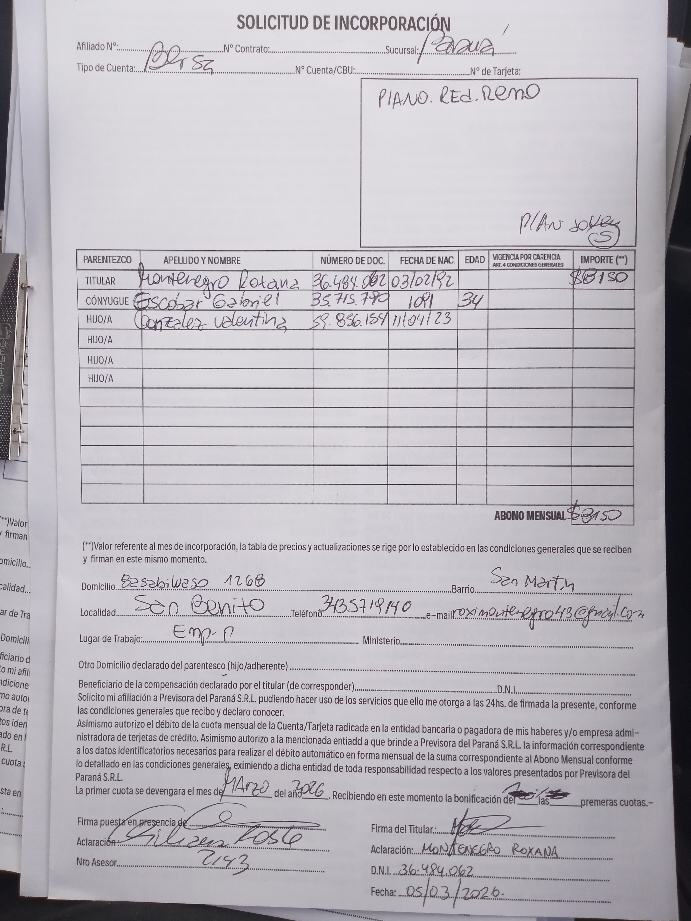 SOLICITUD DE INCORPORACIÓN
Afiliado N°: N° Contrato: Sucursal: Paraná
Tipo de Cuenta: Bersa N° Cuenta/CBU: N° de Tarjeta:
PlANO. RED. Remo
PlAN Joven
S
PARENTEZCO APELLIDO Y NOMBRE NÚMERO DE DOC. FECHA DE NAC. EDAD VIGENCIA POR CARENCIA ART. 4 CONDICIONES GENERALES IMPORTE (**)
TITULAR Montenegro Roxana 36.484.062 03/02/92 $8150
CÓNYUGUE Escobar Gabriel 35.715.790 1091 34
HIJO/A Gonzalez Valentina 59.856.154 11/04/23
HIJO/A
HIJO/A
HIJO/A
ABONO MENSUAL $8150
(**)Valor referente al mes de incorporación, la tabla de precios y actualizaciones se rige por lo establecido en las condiciones generales que se reciben
y firman en este mismo momento.
Domicilio Basabilbaso 1268 Barrio San Martin
Localidad San Benito Teléfono 3435719140 e-mail roximontenegro43@gmail.com
Lugar de Trabajo: Emp. P Ministerio
Otro Domicilio declarado del parentesco (hijo/adherente)
Beneficiario de la compensación declarado por el titular (de corresponder) D.N.I.
Solicito mi afiliación a Previsora del Paraná S.R.L. pudiendo hacer uso de los servicios que ello me otorga a las 24hs. de firmada la presente, conforme
las condiciones generales que recibo y declaro conocer.
Asimismo autorizo el débito de la cuota mensual de la Cuenta/Tarjeta radicada en la entidad bancaria o pagadora de mis haberes y/o empresa admi-
nistradora de terjetas de crédito. Asimismo autorizo a la mencionada entiadd a que brinde a Previsora del Paraná S.R.L. la información correspondiente
a los datos identificatorios necesarios para realizar el débito automático en forma mensual de la suma correspondiente al Abono Mensual conforme
lo detallado en las condiciones generales, eximiendo a dicha entidad de toda responsabilidad respecto a los valores presentados por Previsora del
Paraná S.R.L.
La primer cuota se devengara el mes de MArzo del año 2026. Recibiendo en este momento la bonificación de las premeras cuotas.-
Firma puesta en presencia de Firma del Titular:
Aclaración: Aclaración: MONTENEGRO ROXANA
Nro Asesor 2143 D.N.I. 36.484.062
Fecha: 05/03/2026.